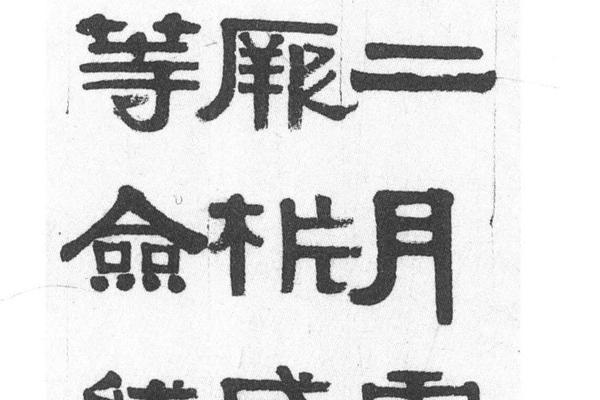 二月
厥㭊
等僉